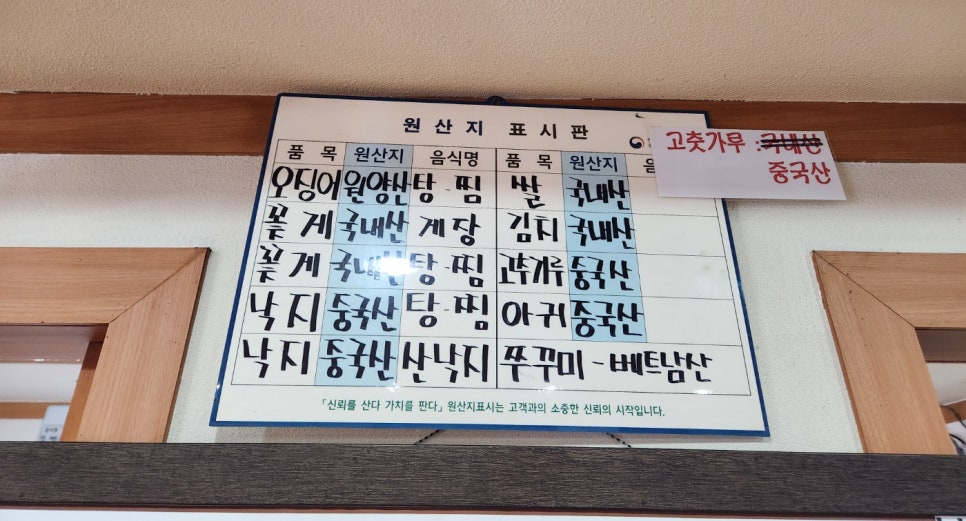 원산지 표시판
품목 원산지 음식명 품목 원산지 음
오징어 원양산 탕·찜 쌀 국내산
꽃게 국내산 게장 김치 국내산
꽃게 국내산 탕·찜 고추가루 중국산
낙지 중국산 탕·찜 아귀 중국산
낙지 중국산 산낙지 쭈꾸미-베트남산
「신뢰를 산다 가치를 판다」 원산지표시는 고객과의 소중한 신뢰의 시작입니다.
고춧가루 : 국내산
중국산